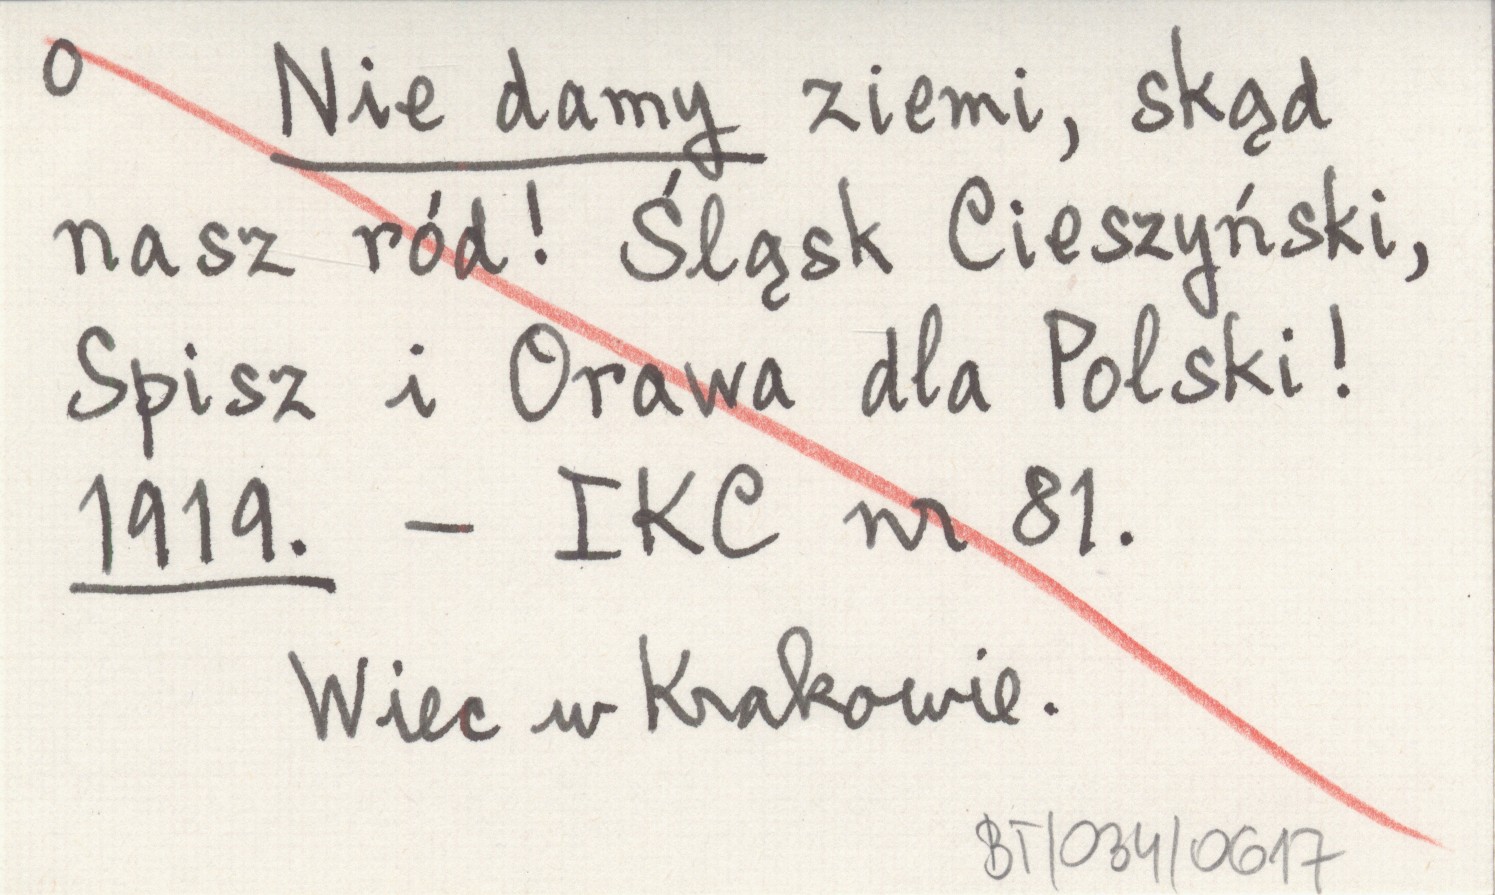 O Nie damy ziemi, skąd
nasz ród! Śląsk Cieszyński,
Spisz i Orawa dla Polski!
1919. – IKC nr 81.
Wiec w Krakowie.
BT/034/0617